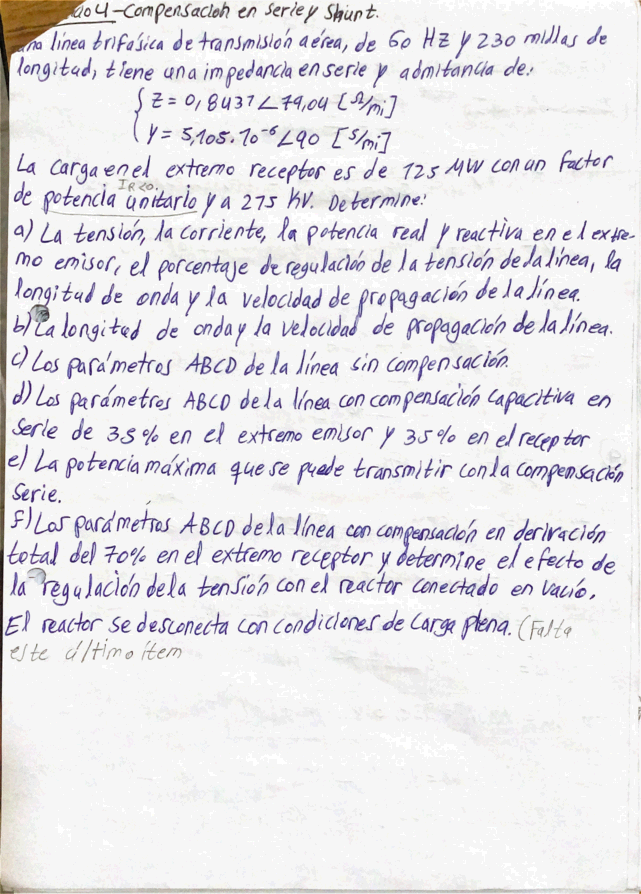 4-Compensación en Serie y Shunt.
una línea trifásica de transmisión aérea, de 60 HZ y 230 millas de
longitud, tiene una impedancia en serie y admitancia de:
Z = 0,8431∠79,04 [Ω/mi]
Y = 5,105.10⁻⁶∠90 [S/mi]
La carga en el extremo receptor es de 125 MW con un factor
de potencia unitario y a 275 KV. Determine:
a) La tensión, la corriente, la potencia real y reactiva en el extre-
mo emisor, el porcentaje de regulación de la tensión de la línea, la
longitud de onda y la velocidad de propagación de la línea.
b) La longitud de onda y la velocidad de propagación de la línea.
c) Los parámetros ABCD de la línea sin compensación.
d) Los parámetros ABCD de la línea con compensación capacitiva en
serie de 35% en el extremo emisor y 35% en el receptor
e) La potencia máxima que se puede transmitir con la compensación
Serie.
f) Los parámetros ABCD de la línea con compensación en derivación
total del 70% en el extremo receptor y determine el efecto de
la regulación de la tensión con el reactor conectado en vacío.
El reactor se desconecta con condiciones de carga plena. (Falta
este último ítem